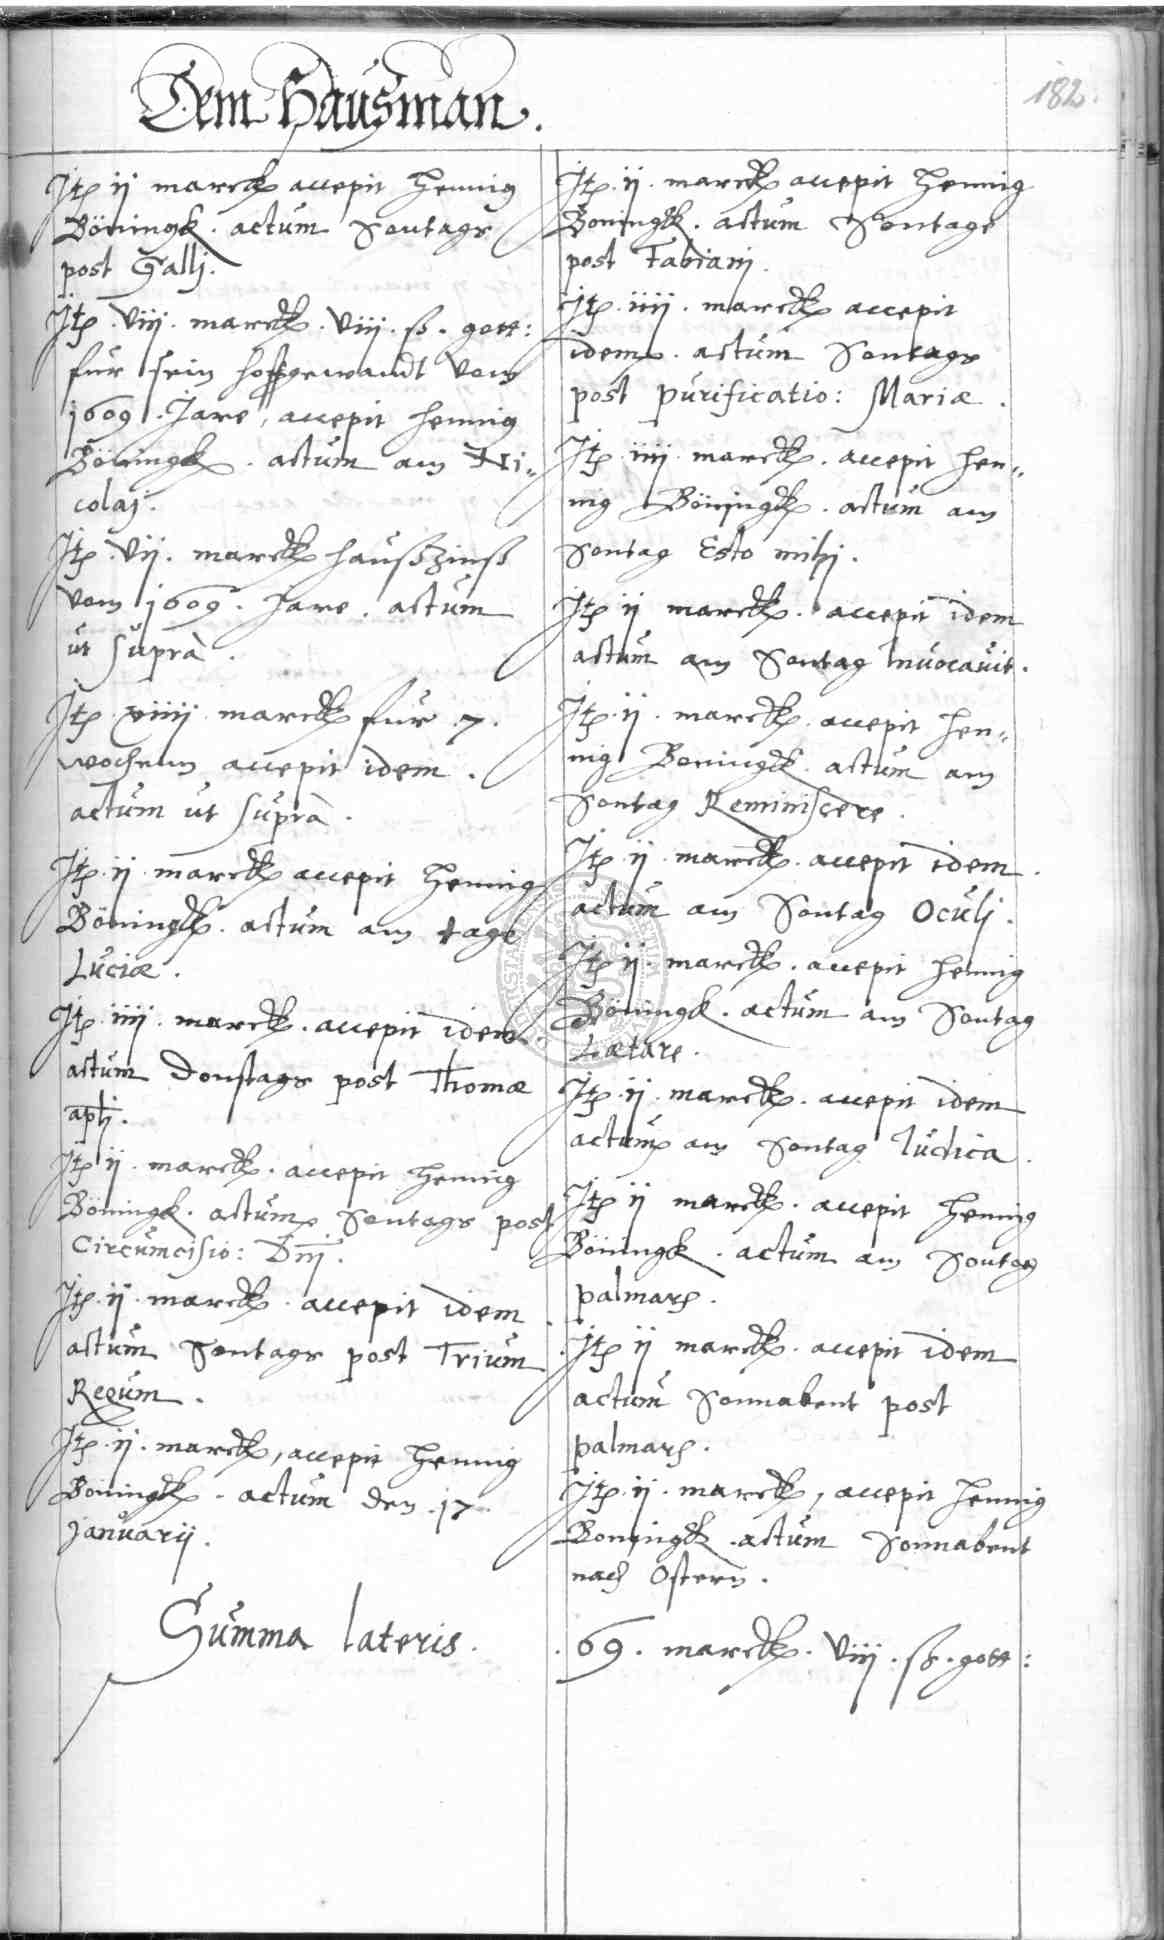 Dem Hausman.
182.
Itẽ ij marck accepit Hennig
Böningk. actum Sontags
post Gallj.
Itẽ. viij. marck. viij. ß. gott:
für sein hoffgewandt vom
1609. Jare, accepit Hennig
Böningk. actum am Ni„
colaj.
Itẽ. vij. marck haußzinß
vom 1609. Jare. actum
ut supra.
Itẽ xiiij marck für 7.
wochenn accepit idem.
actum ut supra.
Itẽ. ij. marck accepit Hennig
Böningk. actum am tage
Luciæ.
Itẽ. iiij. marck. accepit idem.
actum Donstags post Thomæ
aplj.
Itẽ ij. marck. accepit Hennig
Böningk. actum Sontags post
Circumcisio: Dnj.
Itẽ. ij. marck. accepit idem
actum Sontags post Trium
Regum.
Itẽ. ij. marck, accepit Hennig
Böningk. actum den. 17.
Januarij.
Summa lateris.
Itẽ. ij. marck accepit Hennig
Boningk. actum Sontags
post Fabianj.
Itẽ. iiij. marck accepit
idem. actum Sontags
post purificatio: Mariæ.
Itẽ. iiij. marck. accepit Hen„
nig Böningk. actum am
Sontag Esto mihj.
Itẽ ij marck. accepit idem
actum am Sontag Invocavit.
Itẽ. ij. marck. accepit Hen„
nig Boningk. actum am
Sontag Reminiscere.
Itẽ. ij. marck. accepit idem.
actum am Sontag Oculj.
Itẽ ij. marck. accepit Hennig
Böningk. actum am Sontag
Lætare.
Itẽ. ij. marck. accepit idem
actum am Sontag Iudica.
Itẽ ij marck. accepit Hennig
Böningk. actum am Sontag
palmarũ.
Itẽ ij marck. accepit idem
actum Sonnabent post
palmarũ.
Itẽ. ij. marck, accepit Hennig
Boningk. actum Sonnabent
nach Ostern.
69. marck. viij. ß. gott: